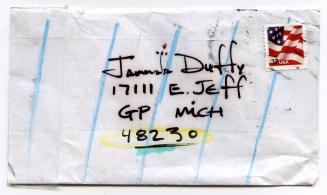 Duffy
17111 E. Jeff
GP Mich
48230
USA